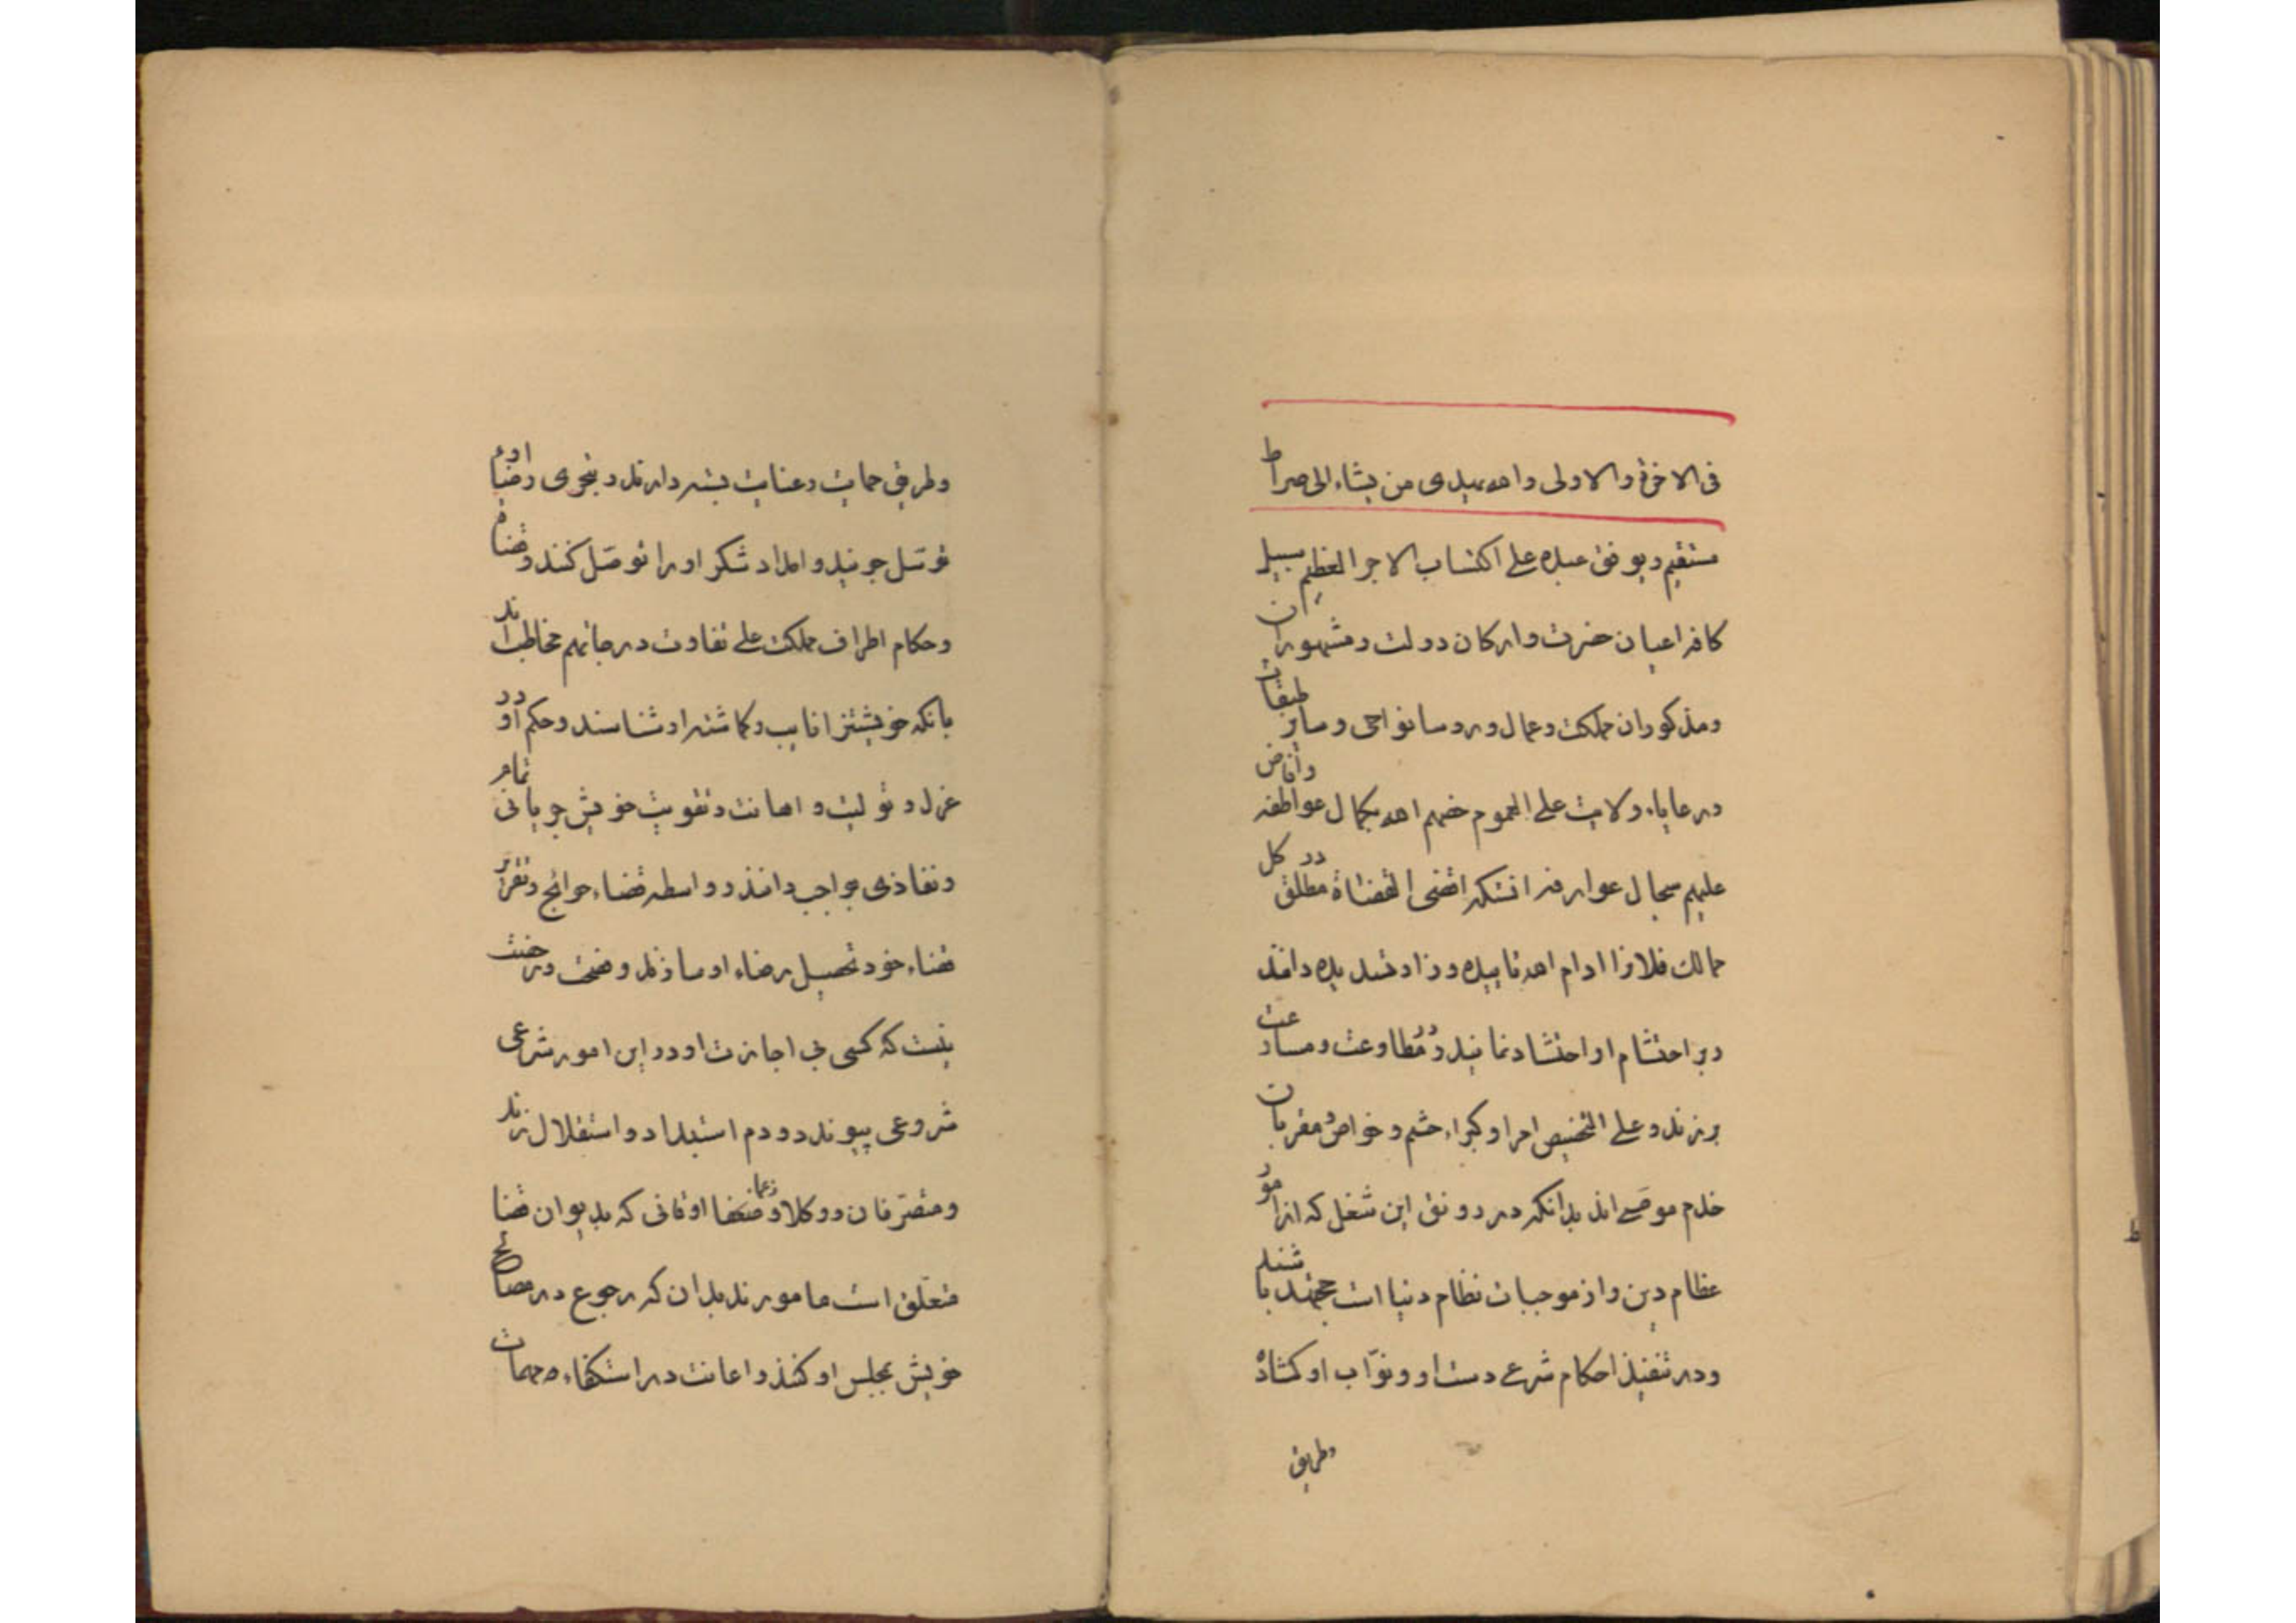 فی الاخرة والاولی والله یهدی من یشاء الی صراط
مستقیم ویوفق عبده علی اکتساب الاجر العظیم سبیل
کافه اعیان حضرت وارکان دولت ومشهوران
ومذکوران مملکت وعمال ورؤسا نواحی وسایر طبقات
ورعایاء ولایت علی العموم خصهم الله بکمال عواطفه وافاض
علیهم سجال عوارفه انستکه اقضی القضاة مطلق در کل
ممالک فلان را ادام الله تاییده وزاد تسدیده دانند
ودر احتشام او احتشاد نمایند ودر مطاوعت ومسارعت
برزند وعلی التخصیص امرا وکبراء حشم وخواص ومقربان
خدم موصی اند بدانکه در رونق این شغل که از امور
عظام دین واز موجبات نظام دنیا است مجتهد باشند
ودر تنفیذ احکام شرع دست او ونواب او گشاده
وطریق
وطریق حمایت وعنایت بسته دارند وبنجوی رضاء او
توسل جویند وامداد شکر او را توصل کنند وقضاة
وحکام اطراف مملکت علی تفاوت درجاتهم مخاطب اند
بانکه خویشتنرا نایب وگماشته او شناسند وحکم او در
عزل وتولیت واهانت وتقویت خویش جریانی تمام
ونفاذی بواجب دانند وواسطه قضاء حوائج وتقریر
قضاء خود تحصیل رضاء او سازند ورخصت
نیست که کسی بی اجازت او در این امور شرعی
شروعی پیوندد ودم استبداد واستقلال زند
ومتصرفان ووکلا وزعما اوقافی که بدیوان قضا
متعلق است مامورند بدان که رجوع در مصالح
خویش بمجلس او کنند واعانت در استکفاء مهمات